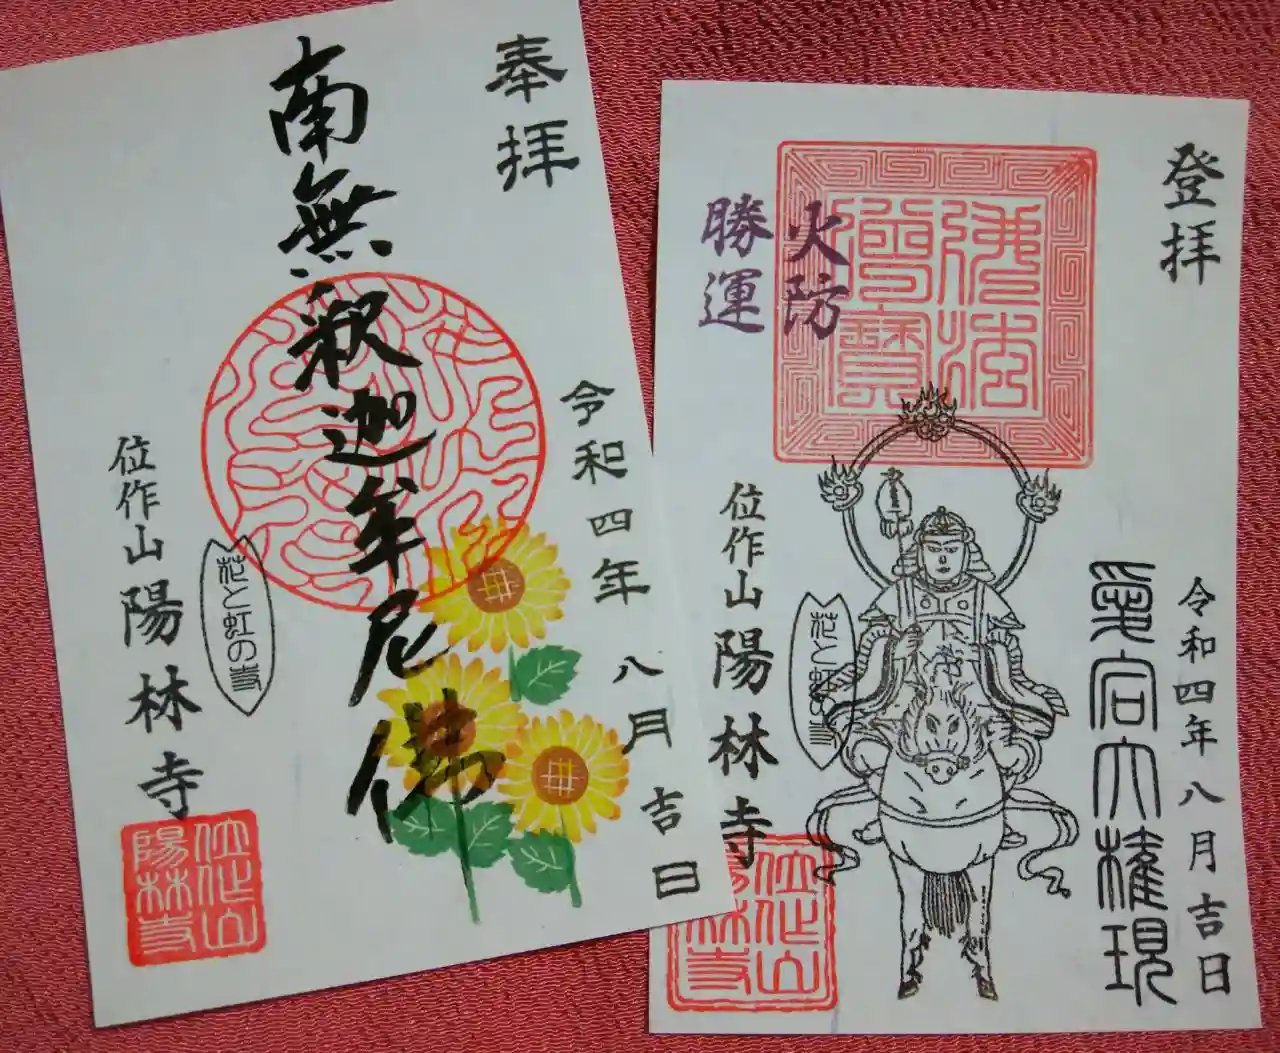 奉拝
南無釈迦牟尼佛
令和四年八月吉日
花と虹の寺
位作山陽林寺
位作山
陽林寺
登拝
佛法
僧寳
火防
勝運
愛宕大権現
令和四年八月吉日
花と虹の寺
位作山陽林寺
位作山
陽林寺